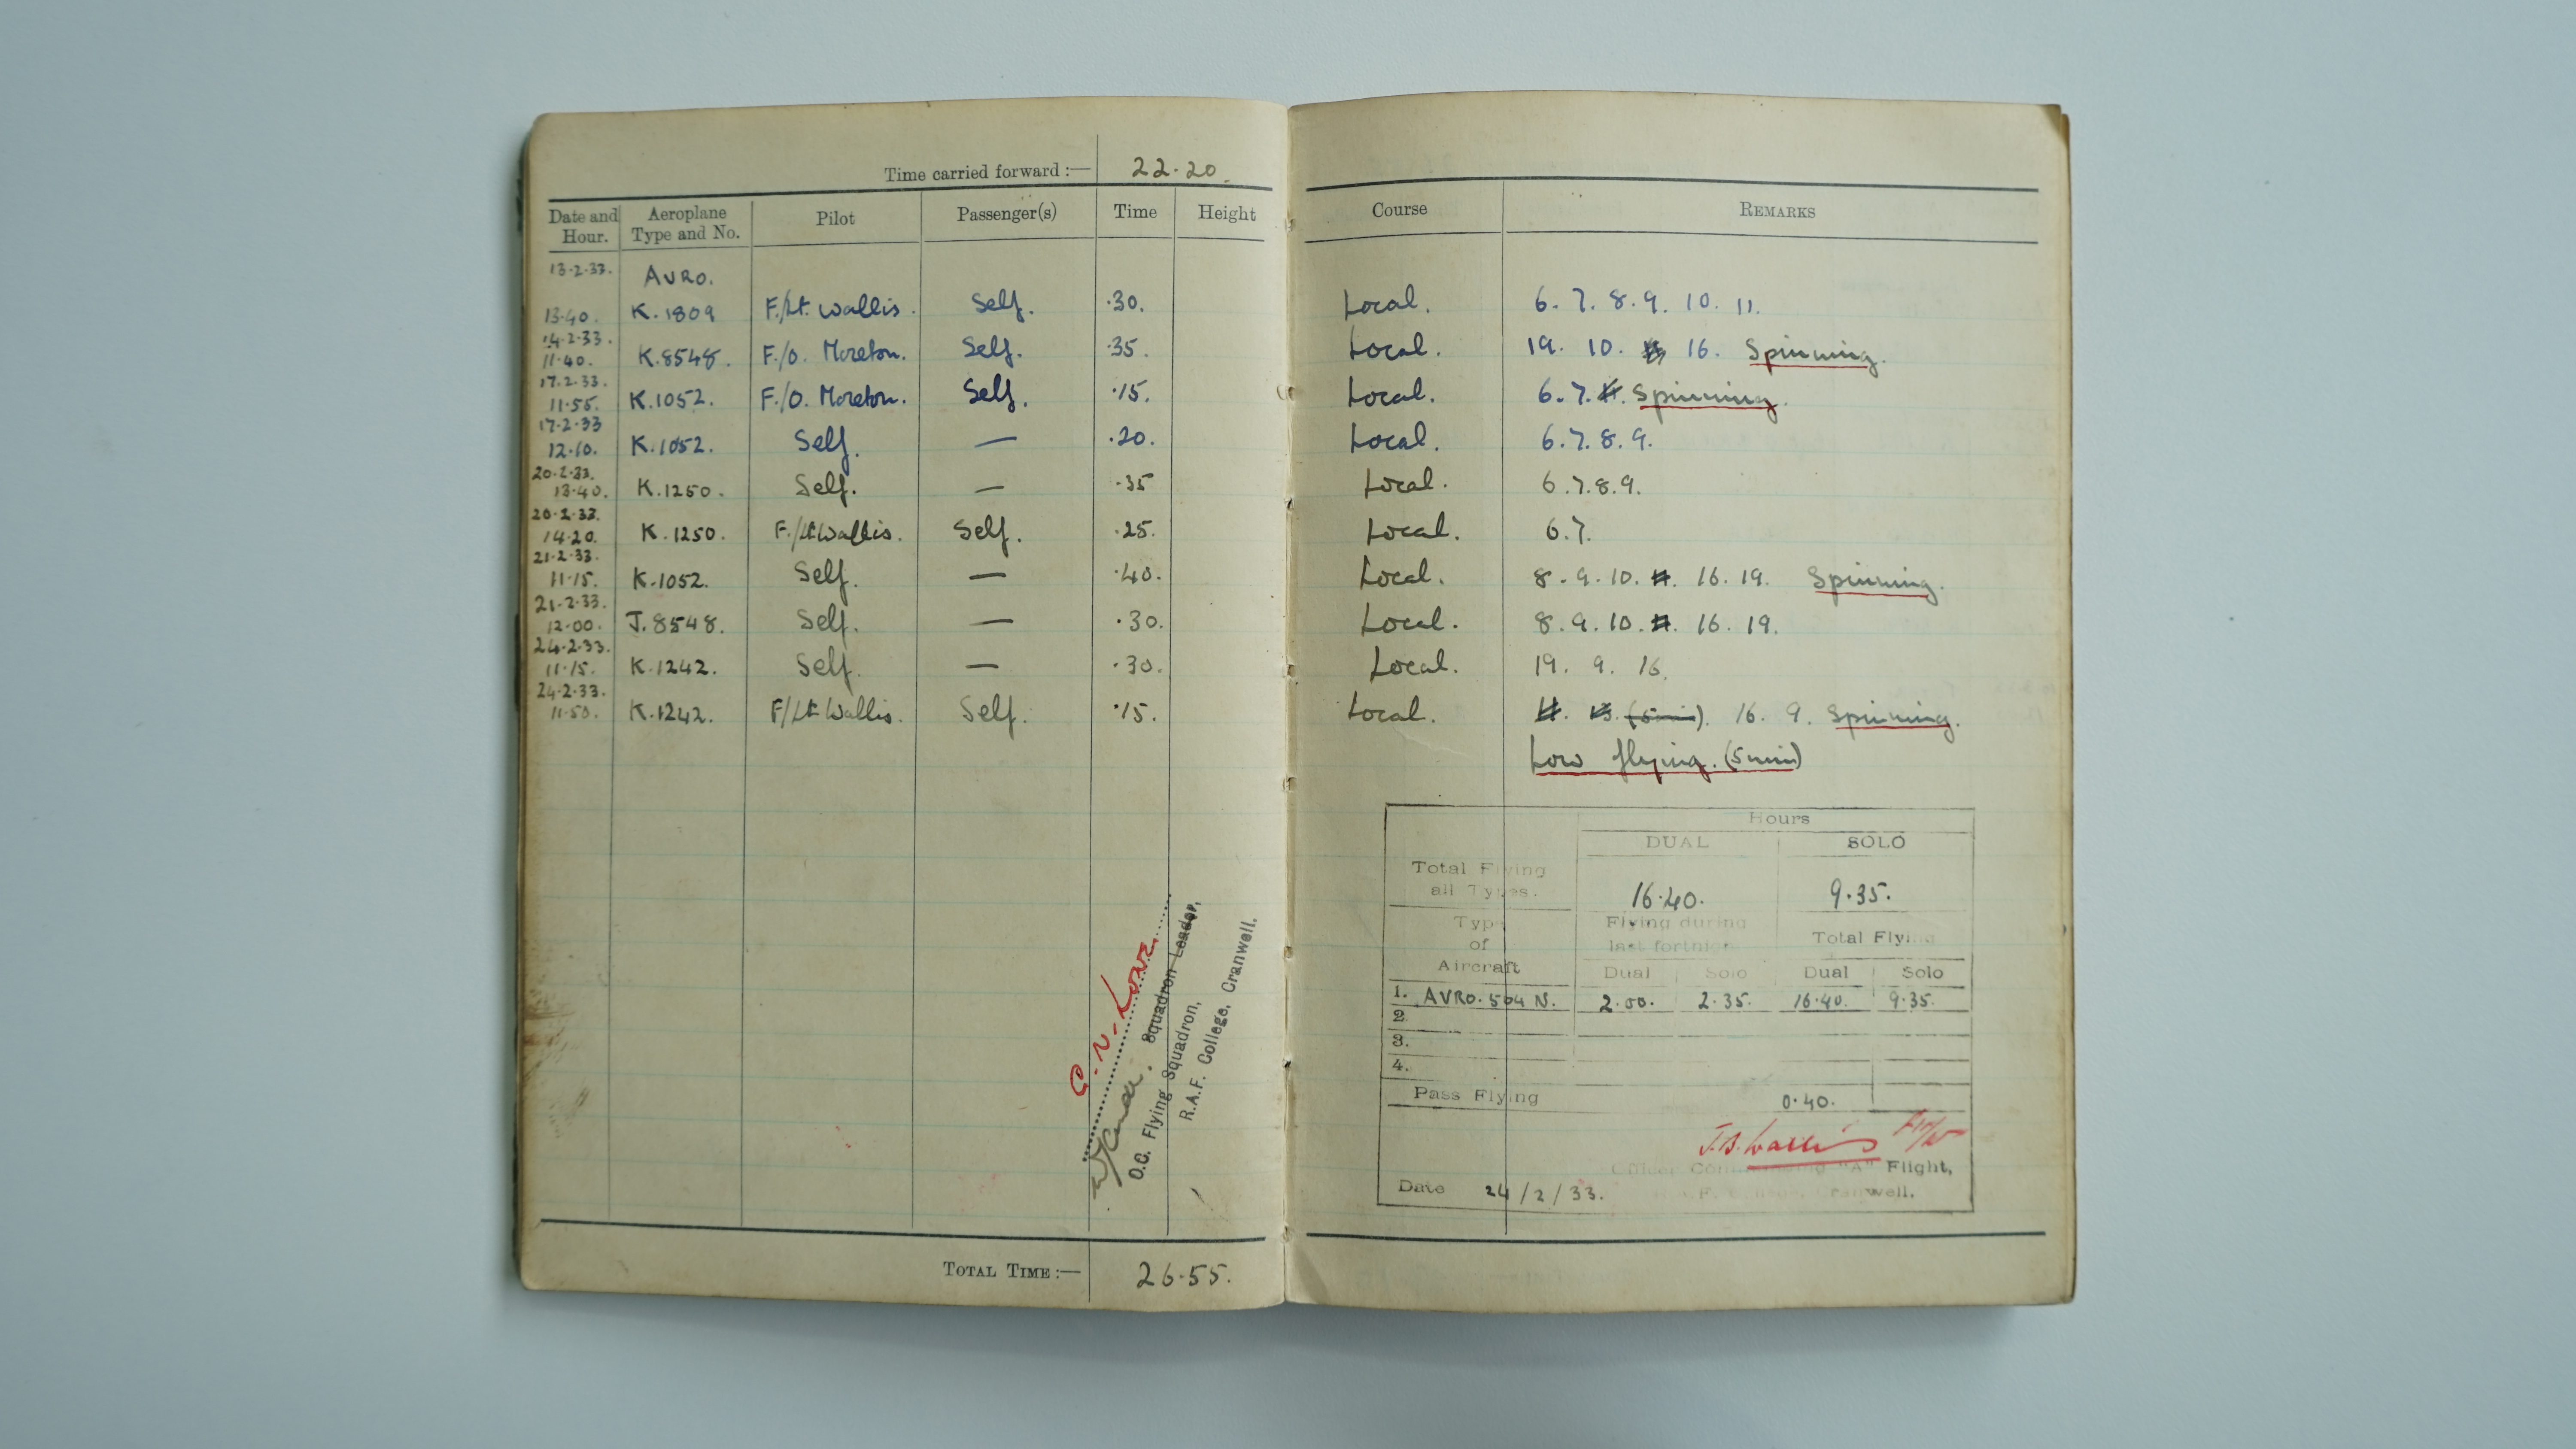 Time carried forward :— 22.20.
Date and Hour. Aeroplane Type and No. Pilot Passenger(s) Time Height Course REMARKS
13.2.33. AVRO.
13.40. K.1809 F./Lt. Wallis. Self. .30. Local. 6. 7. 8. 9. 10. 11.
14.2.33.
11.40. K.8548. F./O. Moreton. Self. .35. Local. 19. 10. 16. Spinning.
17.2.33.
11.55. K.1052. F./O. Moreton. Self. .15. Local. 6. 7. Spinning.
17.2.33
12.10. K.1052. Self. — .20. Local. 6.7.8.9.
20.2.33.
13.40. K.1250. Self. — .35 Local. 6.7.8.9.
20.2.33.
14.20. K.1250. F./Lt Wallis. Self. .25. Local. 6.7.
21.2.33.
11.15. K.1052. Self. — .40. Local. 8. 9. 10. 16. 19. Spinning.
21.2.33.
12.00. J.8548. Self. — .30. Local. 8. 9. 10. 16. 19.
24.2.33.
11.15. K.1242. Self. — .30. Local. 19. 9. 16.
24.2.33.
11.50. K.1242. F/Lt Wallis. Self. .15. Local. (5 min). 16. 9. Spinning.
Low flying. (5 min)
Squadron Leader,
O.C. Flying Squadron,
R.A.F. College, Cranwell.
TOTAL TIME :— 26.55.
Hours
DUAL SOLO
Total Flying all Types. 16.40. 9.35.
Type of Aircraft Flying during last fortnight Total Flying
Dual Solo Dual Solo
1. AVRO. 504 N. 2.00. 2.35. 16.40. 9.35.
2.
3.
4.
Pass Flying 0.40.
J.B. Wallis
Officer Commanding "A" Flight,
Date 24/2/33. R.A.F. College, Cranwell.